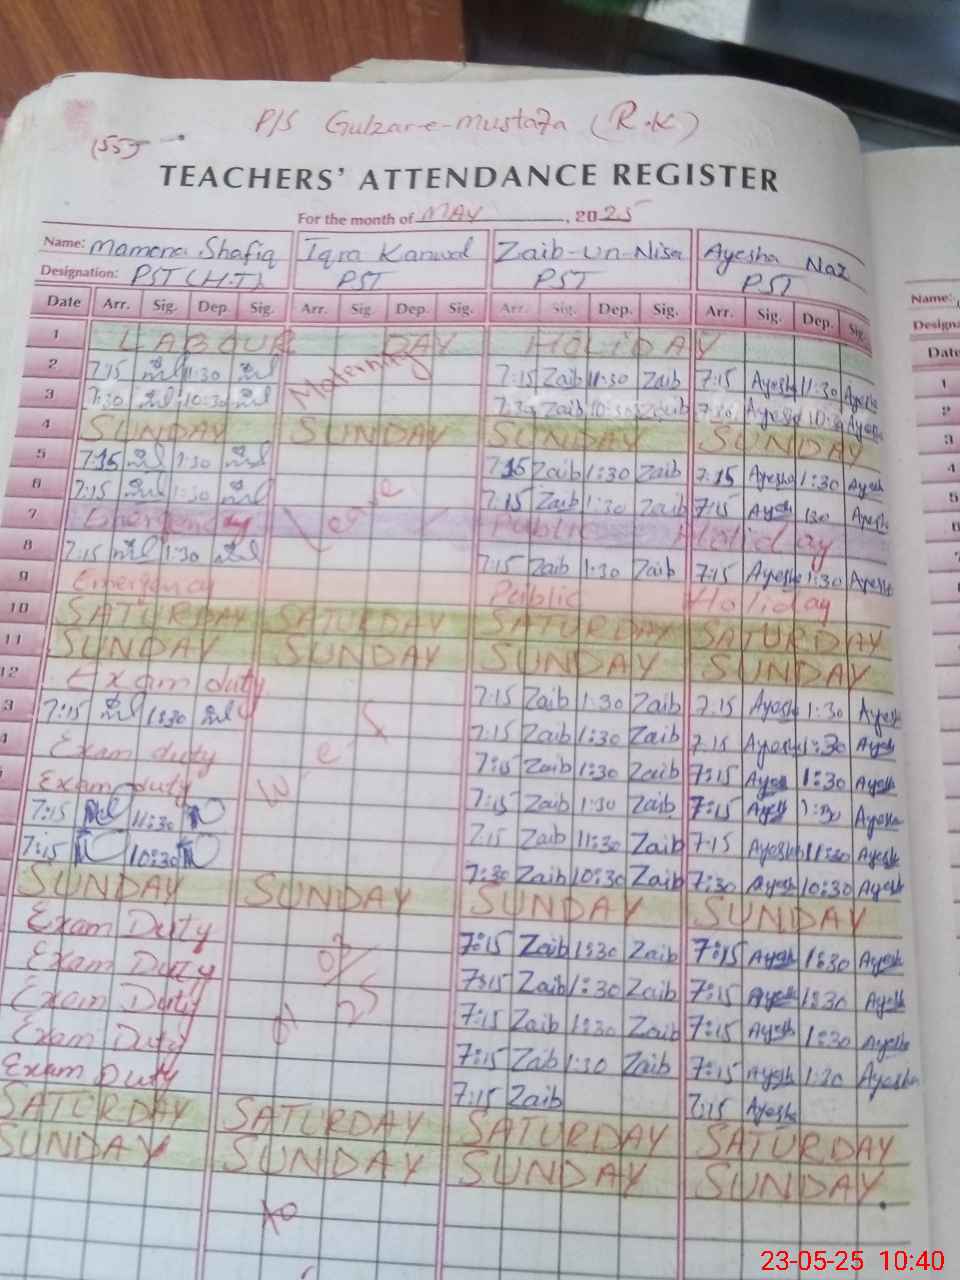 P/S Gulzar-e-mustafa (R.K)
TEACHERS' ATTENDANCE REGISTER
For the month of MAY, 2025
Name: Mamona Shafiq Iqra Kanwal Zaib-Un-Nisa Ayesha Naz
Designation: PST (H.T) PST PST PST
Date Arr. Sig. Dep. Sig. Arr. Sig. Dep. Sig. Arr. Sig. Dep. Sig. Arr. Sig. Dep. Sig.
1 LABOUR DAY HOLIDAY
2 7:15 11:30 Maternity 7:15 Zaib 11:30 Zaib 7:15 Ayesha 11:30 Ayesha
3 7:30 10:30 7:30 Zaib 10:30 Zaib 7:30 Ayesha 10:30 Ayesha
4 SUNDAY SUNDAY SUNDAY SUNDAY
5 7:15 1:30 7:15 Zaib 1:30 Zaib 7:15 Ayesha 1:30 Ayesh
6 7:15 1:30 Leave 7:15 Zaib 1:30 Zaib 7:15 Ayesh 130 Ayesh
7 Emergency Public Holiday
8 7:15 1:30 7:15 Zaib 1:30 Zaib 7:15 Ayesha 1:30 Ayesha
9 Emergency Public Holiday
10 SATURDAY SATURDAY SATURDAY SATURDAY
11 SUNDAY SUNDAY SUNDAY SUNDAY
12 Exam duty 7:15 Zaib 1:30 Zaib 7:15 Ayesh 1:30 Ayesh
3 7:15 1:30 7:15 Zaib 1:30 Zaib 7:15 Ayesh 1:30 Ayesh
Exam duty 7:15 Zaib 1:30 Zaib 7:15 Ayesh 1:30 Ayesh
Exam duty 7:15 Zaib 1:30 Zaib 7:15 Ayesh 1:30 Ayesha
7:15 11:30 7:15 Zaib 11:30 Zaib 7:15 Ayesha 11:30 Ayesh
7:15 10:30 7:30 Zaib 10:30 Zaib 7:30 Ayesh 10:30 Ayesh
SUNDAY SUNDAY SUNDAY SUNDAY
Exam Duty 7:15 Zaib 1:30 Zaib 7:15 Ayesh 1:30 Ayesh
Exam Duty 7:15 Zaib 1:30 Zaib 7:15 Ayesh 1:30 Ayesh
Exam Duty 7:15 Zaib 1:30 Zaib 7:15 Ayesh 1:30 Ayesha
Exam Duty 7:15 Zaib 1:30 Zaib 7:15 Ayesh 1:30 Ayesha
Exam Duty 7:15 Zaib 7:15 Ayesha
SATURDAY SATURDAY SATURDAY SATURDAY
SUNDAY SUNDAY SUNDAY SUNDAY
Name:
Date
1
2
3
4
5
23-05-25 10:40